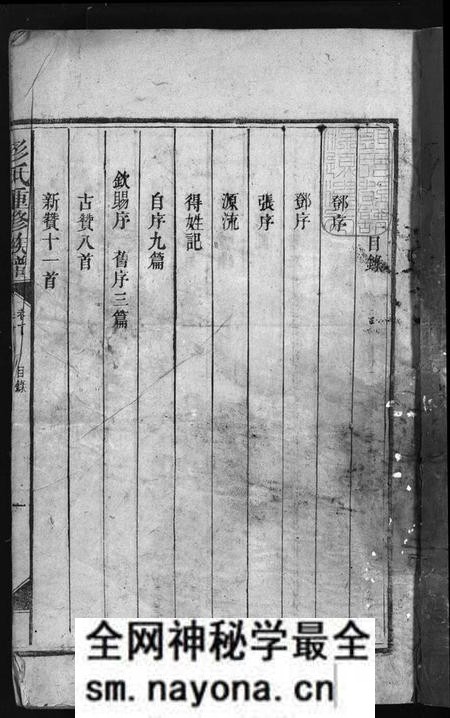 目錄
鄧序
鄧序
張序
源流
得姓記
自序九篇
欽賜序 舊序三篇
古贊八首
新贊十一首
彭氏重修族譜 卷首 目錄 一
全网神秘学最全
sm.nayona.cn